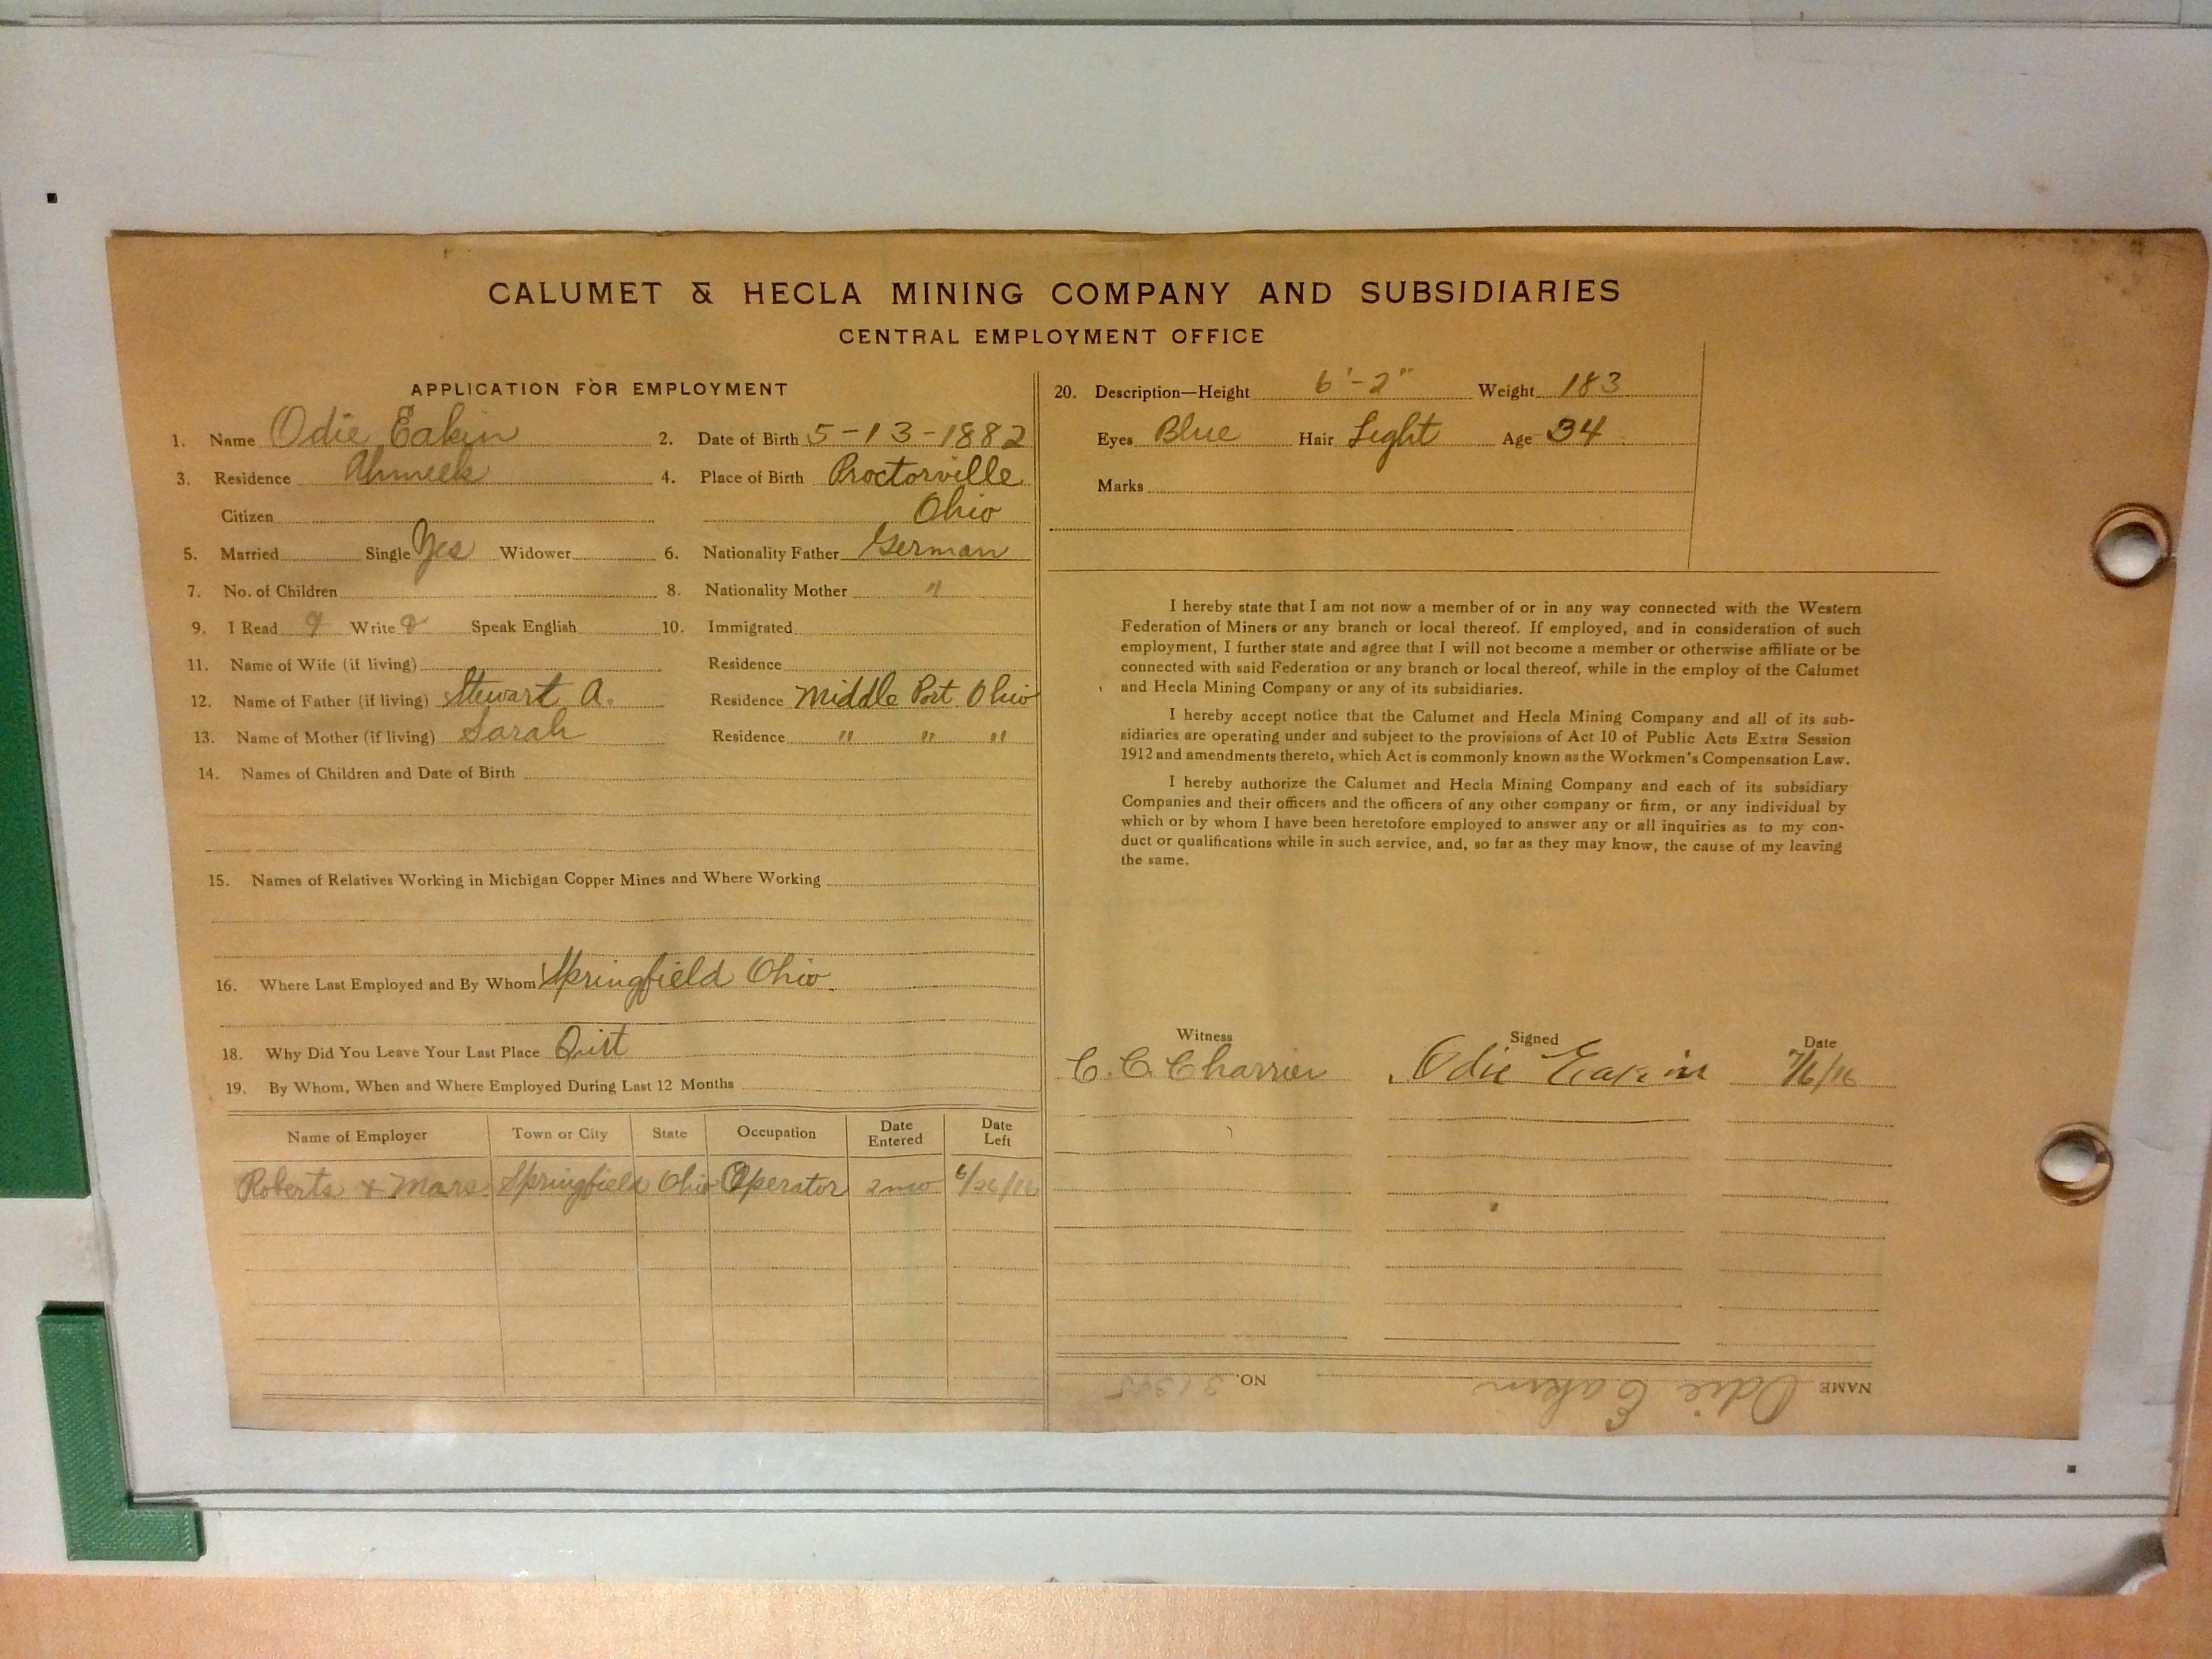 CALUMET & HECLA MINING COMPANY AND SUBSIDIARIES
CENTRAL EMPLOYMENT OFFICE
APPLICATION FOR EMPLOYMENT
1. Name Odie Eakin 2. Date of Birth 5-13-1882
3. Residence Ahmeek 4. Place of Birth Proctorville
Citizen Ohio
5. Married Single Yes Widower 6. Nationality Father German
7. No. of Children 8. Nationality Mother "
9. I Read Write Speak English 10. Immigrated
11. Name of Wife (if living) Residence
12. Name of Father (if living) Stewart A. Residence Middle Port Ohio
13. Name of Mother (if living) Sarah Residence " " "
14. Names of Children and Date of Birth
15. Names of Relatives Working in Michigan Copper Mines and Where Working
16. Where Last Employed and By Whom Springfield Ohio.
18. Why Did You Leave Your Last Place Quit
19. By Whom, When and Where Employed During Last 12 Months
Name of Employer Town or City State Occupation Date Entered Date Left
Roberts & Mars. Springfield Ohio Operator 2 mo 6/26/16
20. Description—Height 6'-2" Weight 183
Eyes Blue Hair Light Age 34
Marks
I hereby state that I am not now a member of or in any way connected with the Western
Federation of Miners or any branch or local thereof. If employed, and in consideration of such
employment, I further state and agree that I will not become a member or otherwise affiliate or be
connected with said Federation or any branch or local thereof, while in the employ of the Calumet
and Hecla Mining Company or any of its subsidiaries.
I hereby accept notice that the Calumet and Hecla Mining Company and all of its sub-
sidiaries are operating under and subject to the provisions of Act 10 of Public Acts Extra Session
1912 and amendments thereto, which Act is commonly known as the Workmen's Compensation Law.
I hereby authorize the Calumet and Hecla Mining Company and each of its subsidiary
Companies and their officers and the officers of any other company or firm, or any individual by
which or by whom I have been heretofore employed to answer any or all inquiries as to my con-
duct or qualifications while in such service, and, so far as they may know, the cause of my leaving
the same.
Witness Signed Date
C. C. Charrier Odie Eakin 7/6/16
NAME Odie Eakin NO. 31305